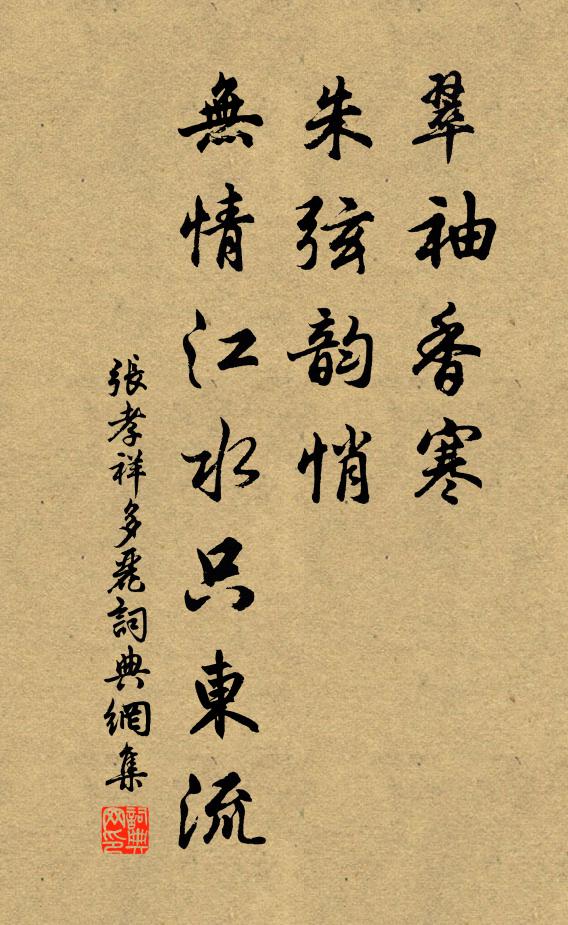 翠袖香寒
朱弦韵悄
無情江水只東流
張孝祥多麗詞典網集
詞典网印